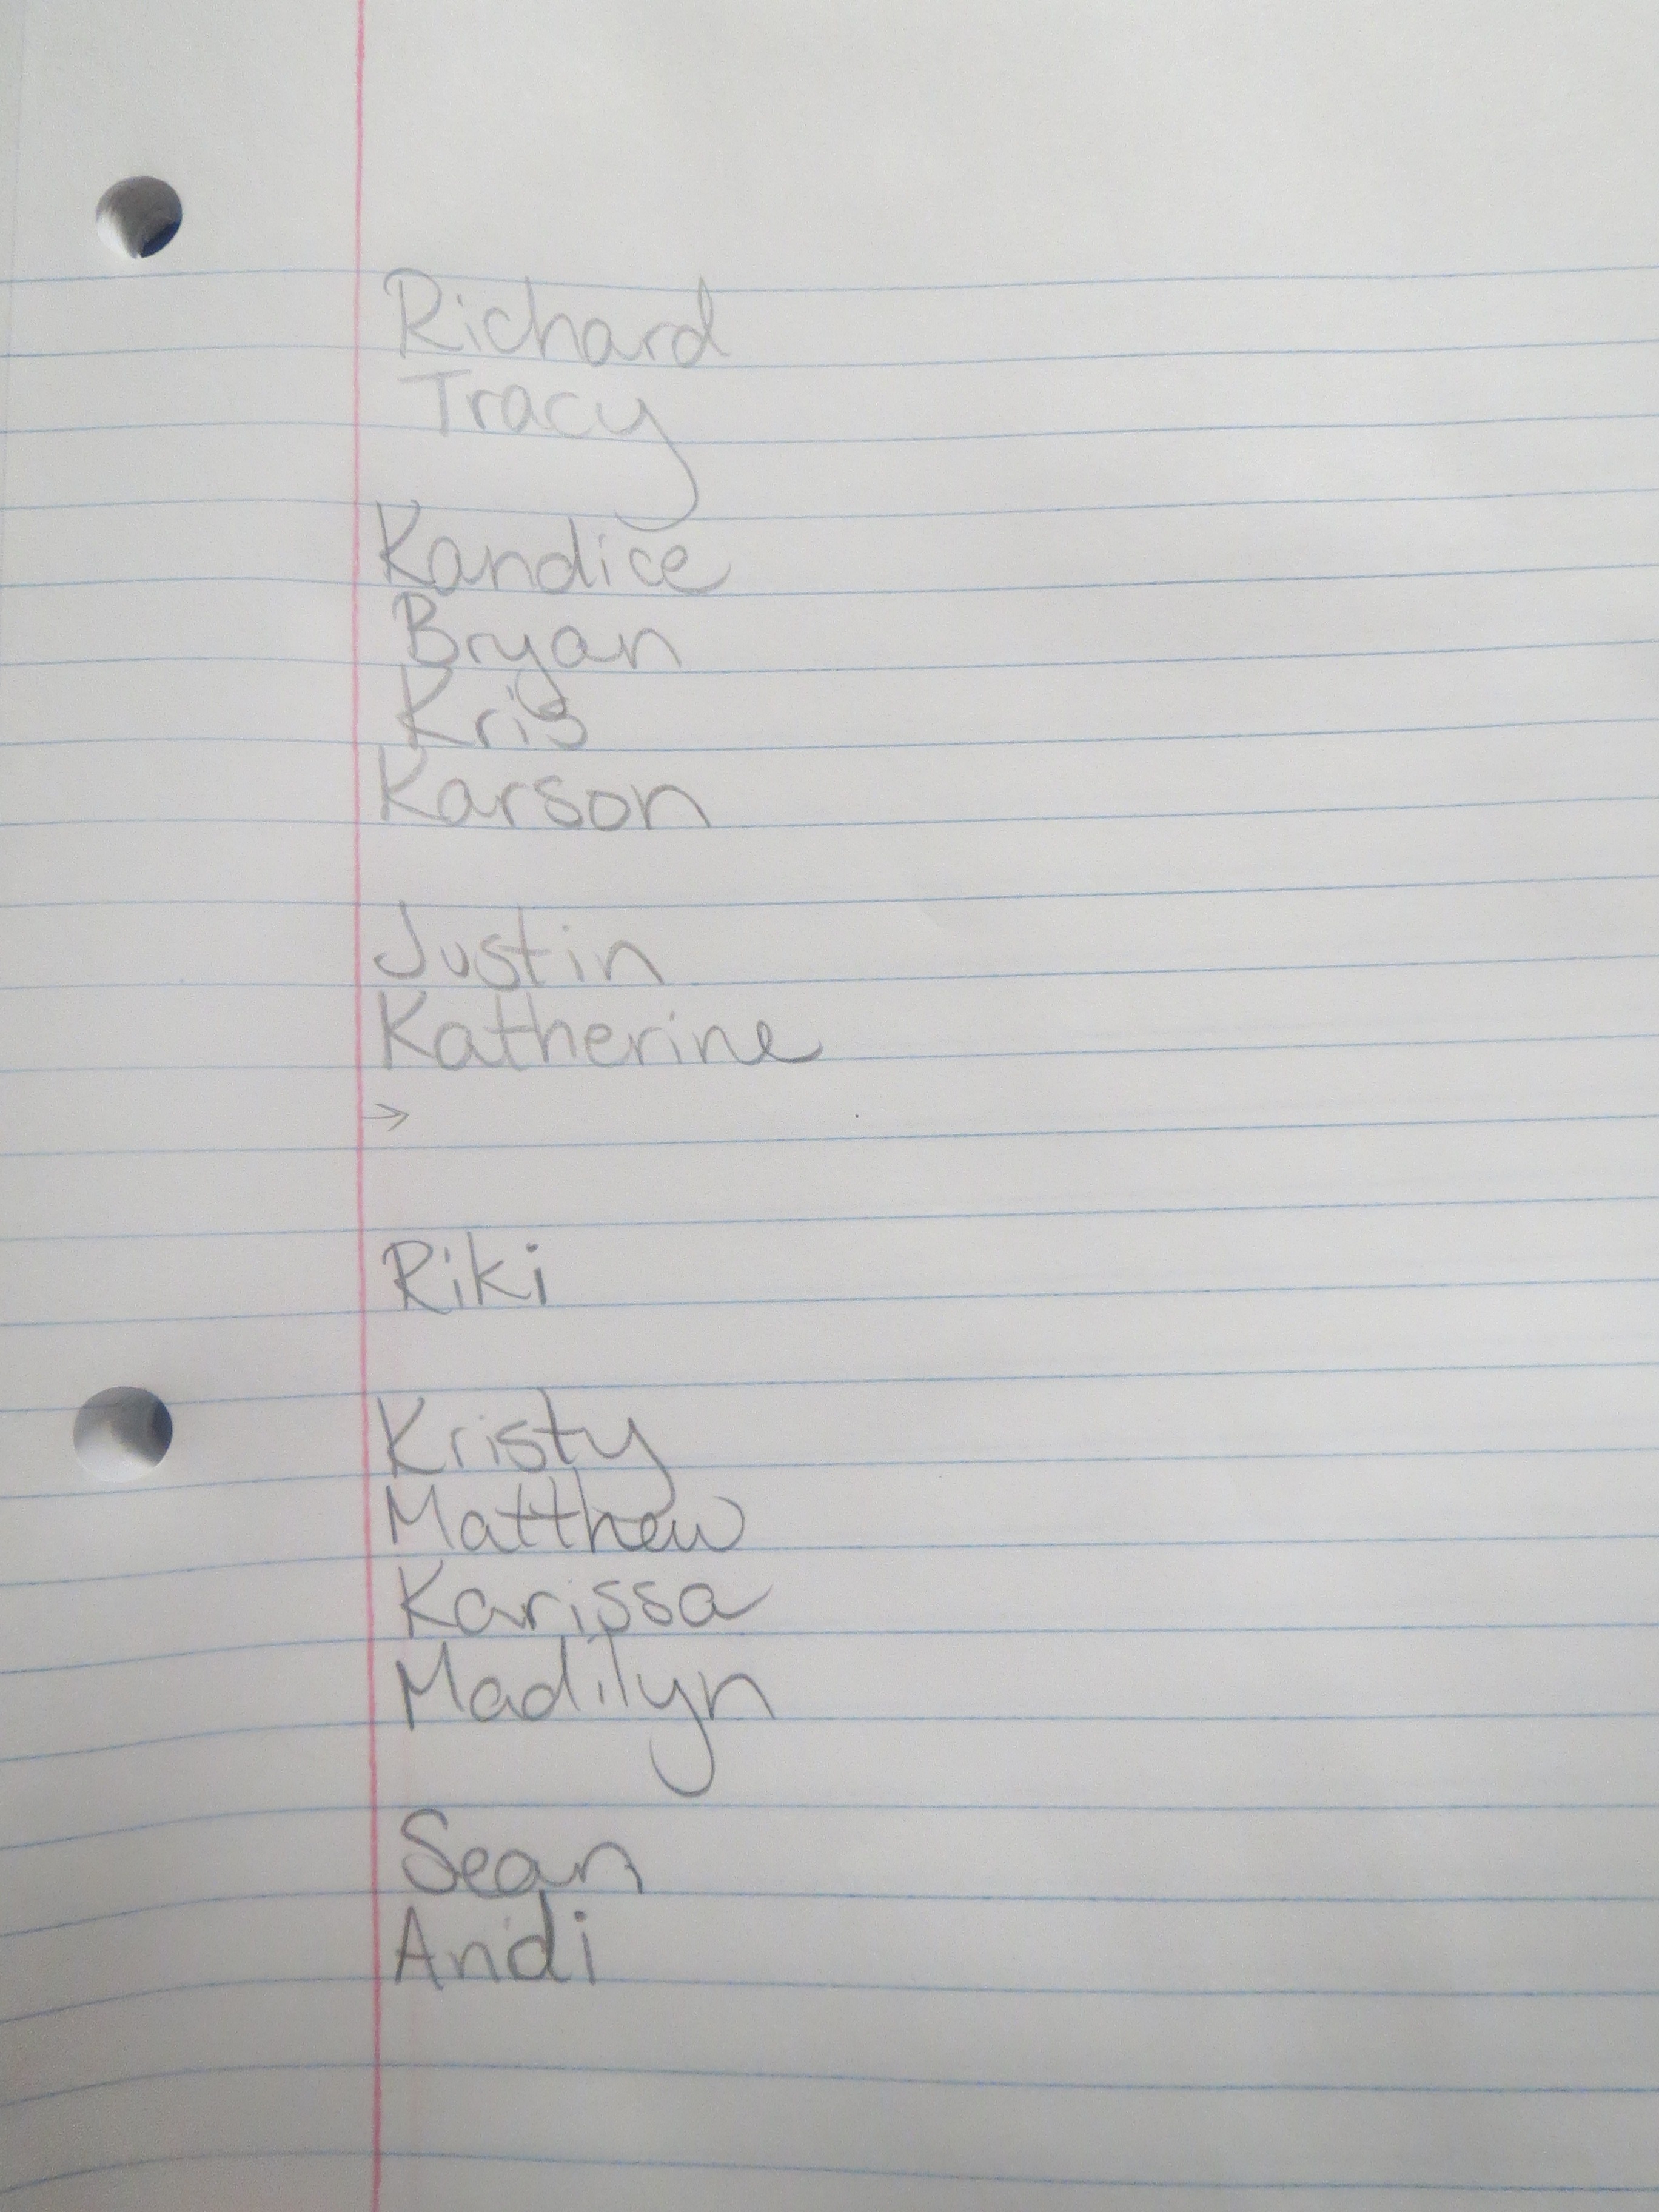 Richard
Tracy
Kandice
Bryan
Kris
Karson
Justin
Katherine
→
Riki
Kristy
Matthew
Karissa
Madilyn
Sean
Andi